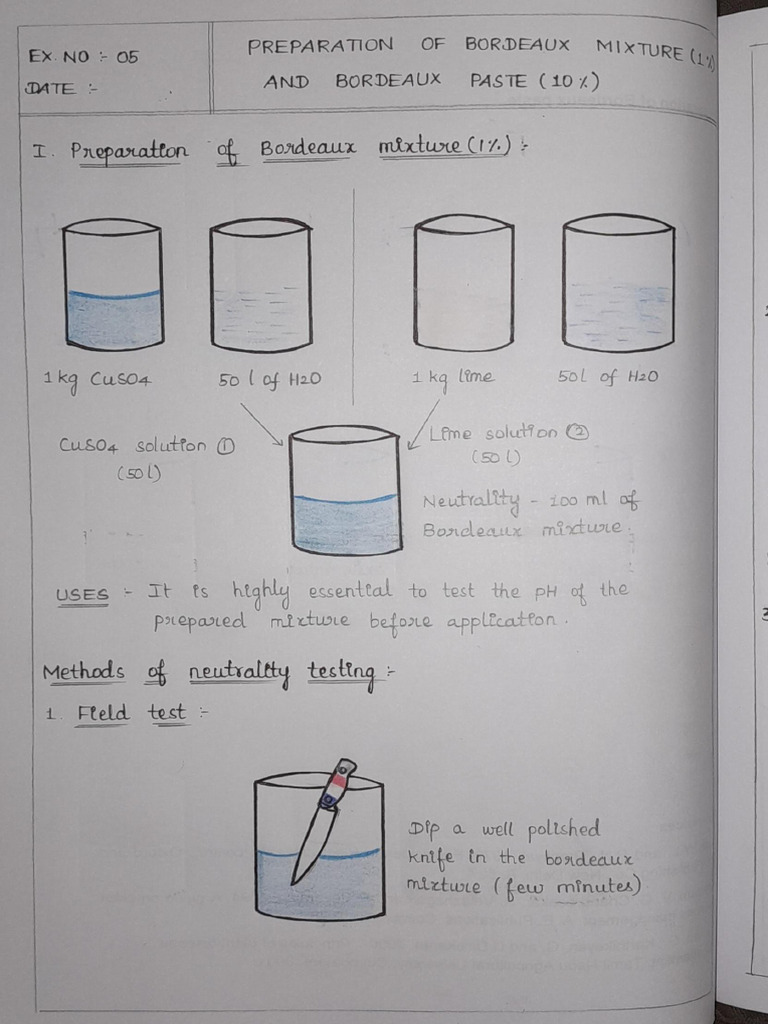 EX. NO :- 05
DATE :-
PREPARATION OF BORDEAUX MIXTURE (1%)
AND BORDEAUX PASTE (10%)
I. Preparation of Bordeaux mixture (1%) :-
1 kg CuSO4
50 l of H2O
1 kg lime
50l of H2O
CuSO4 solution ①
(50 l)
Lime solution ②
(50 l)
Neutrality - 100 ml of
Bordeaux mixture.
USES :- It is highly essential to test the pH of the
prepared mixture before application.
Methods of neutrality testing :-
1. Field test :-
Dip a well polished
knife in the bordeaux
mixture (few minutes)